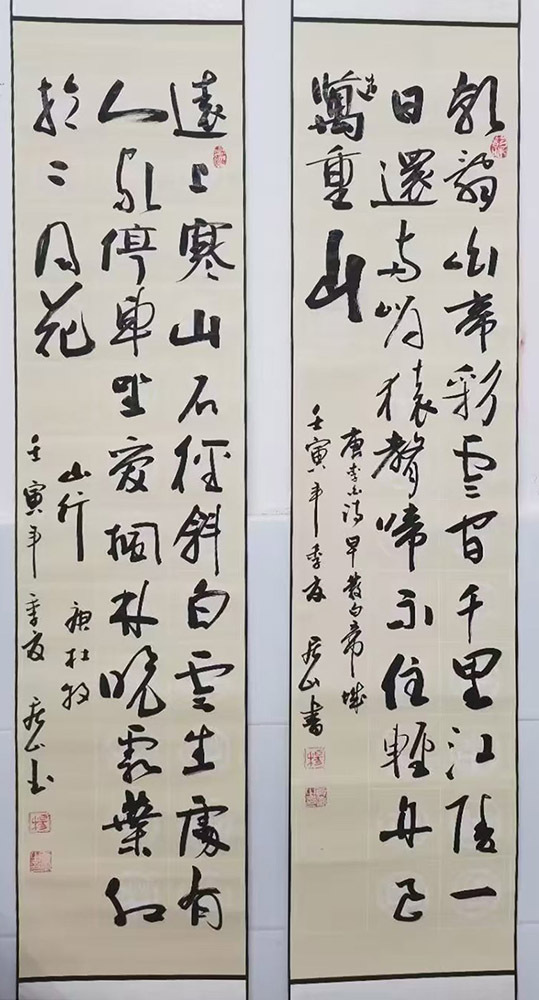 朝辭白帝彩雲間千里江陵一
日還兩岸猿聲啼不住輕舟已
過萬重山
唐李白詩早發白帝城
壬寅年季夏 山書
遠上寒山石徑斜白雲生處有
人家停車坐愛楓林晚霜葉紅
於二月花
山行 唐杜牧
壬寅年季夏 山書